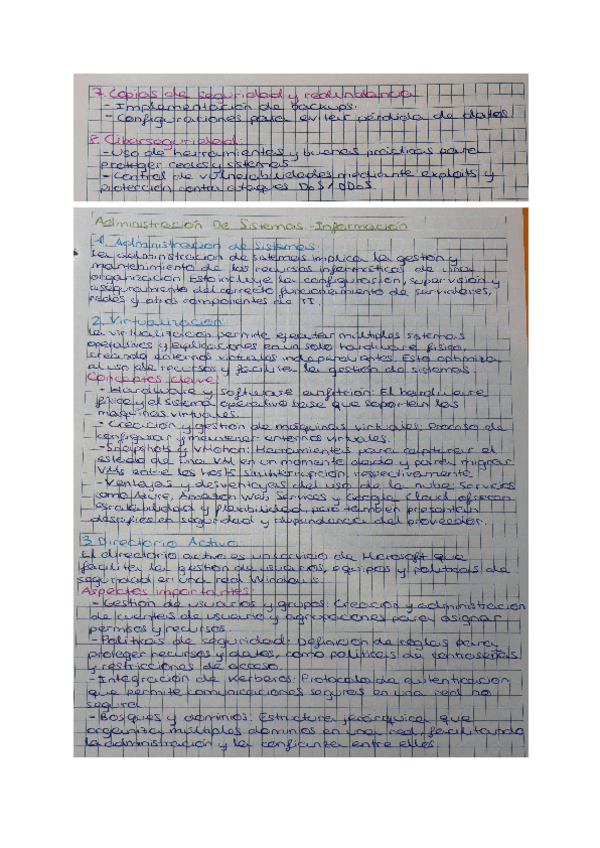 7. Copias de seguridad y redundancia
- Implementación de backups.
- Configuraciones para evitar pérdida de datos
8. Ciberseguridad
- Uso de herramientas y buenas prácticas para
proteger redes y sistemas
- Control de vulnerabilidades mediante exploits y
protección contra ataques DoS / DDoS.
Administración De Sistemas - Información
1. Administración de Sistemas:
La administración de sistemas implica la gestión y
mantenimiento de los recursos informáticos de una
organización. Esto incluye la configuración, supervisión y
aseguramiento del correcto funcionamiento de servidores,
redes y otros componentes de IT.
2. Virtualización
La virtualización permite ejecutar múltiples sistemas
operativos y aplicaciones en un solo hardware físico,
creando entornos virtuales independientes. Esto optimiza
el uso de recursos y facilita la gestión de sistemas
Conceptos clave:
- Hardware y software anfitrión: El hardware
físico y el sistema operativo base que soportan las
máquinas virtuales.
- Creación y gestión de máquinas virtuales: Proceso de
configurar y mantener entornos virtuales.
- Snapshots y VMotion: Herramientas para capturar el
estado de una VM en un momento dado y para migrar
VMs entre los hosts sin interrupción, respectivamente.
- Ventajas y desventajas del uso de la nube: Servicios
como Azure, Amazon Web Services y Google Cloud ofrecen
escalabilidad y flexibilidad, pero también presentan
desafíos en seguridad y dependencia del proveedor.
3. Directorio Activo
El directorio activo es un servicio de Microsoft que
facilita la gestión de usuarios, equipos y políticas de
seguridad en una red Windows.
Aspectos importantes:
- Gestión de usuarios y grupos: Creación y administración
de cuentas de usuario y agrupaciones para asignar
permisos y recursos.
- Políticas de seguridad: Definición de reglas para
proteger recursos y datos, como políticas de contraseñas
y restricciones de acceso.
- Integración de Kerberos: Protocolo de autenticación
que permite comunicaciones seguras en una red no
segura.
- Bosques y dominios: Estructura jerárquica que
organiza múltiples dominios en una red, facilitando
la administración y la confianza entre ellos.